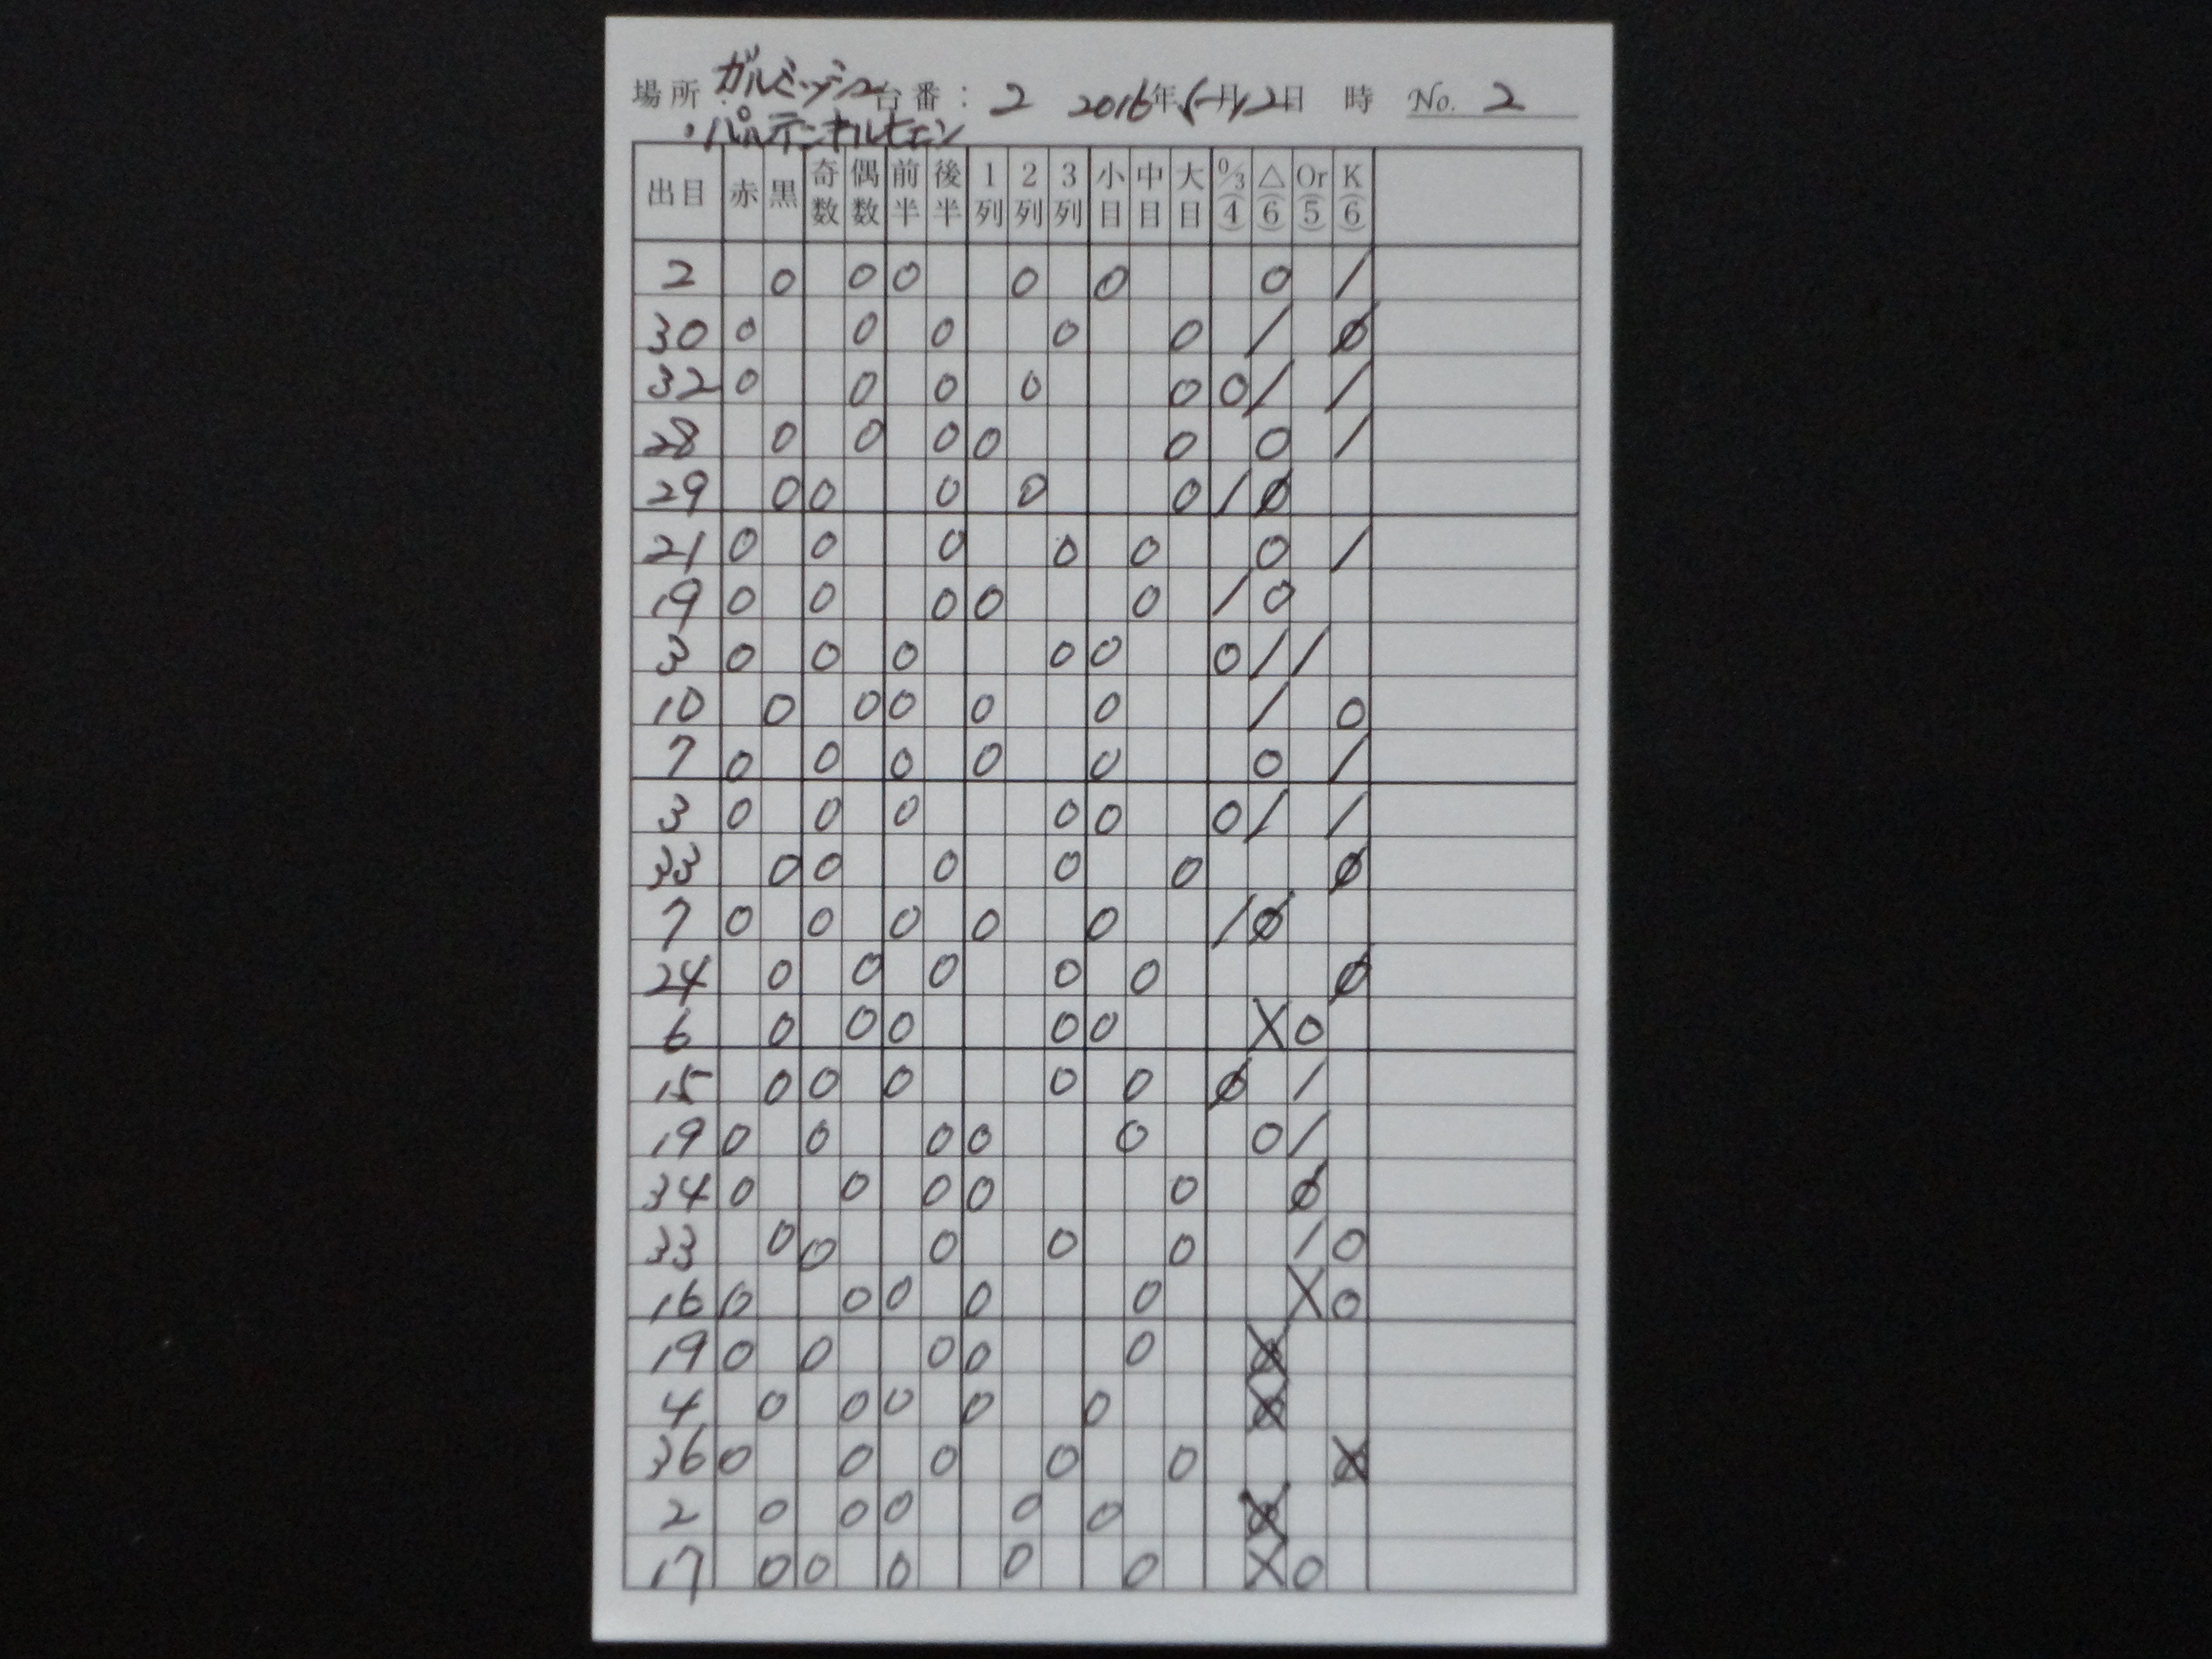 場所 ガルミッシュ 台番： 2 2016年 5月12日 時 No. 2
・パルテンキルヒエン
出目 赤 黒 奇数 偶数 前半 後半 1列 2列 3列 小目 中目 大目 0/3(4) △(6) Or(5) K(6)
2 0 0 0 0 0 0 /
30 0 0 0 0 0 / Ø
32 0 0 0 0 0 0 / /
28 0 0 0 0 0 0 /
29 0 0 0 0 0 / Ø
21 0 0 0 0 0 0 /
19 0 0 0 0 0 / 0
3 0 0 0 0 0 0 / /
10 0 0 0 0 0 / 0
7 0 0 0 0 0 0 /
3 0 0 0 0 0 0 / /
33 0 0 0 0 0 Ø
7 0 0 0 0 0 / Ø
24 0 0 0 0 0 Ø
6 0 0 0 0 0 X 0
15 0 0 0 0 0 Ø /
19 0 0 0 0 0 0 /
34 0 0 0 0 0 Ø
33 0 0 0 0 0 / 0
16 0 0 0 0 0 X 0
19 0 0 0 0 0
4 0 0 0 0 0
36 0 0 0 0 0
2 0 0 0 0 0
17 0 0 0 0 0 X 0